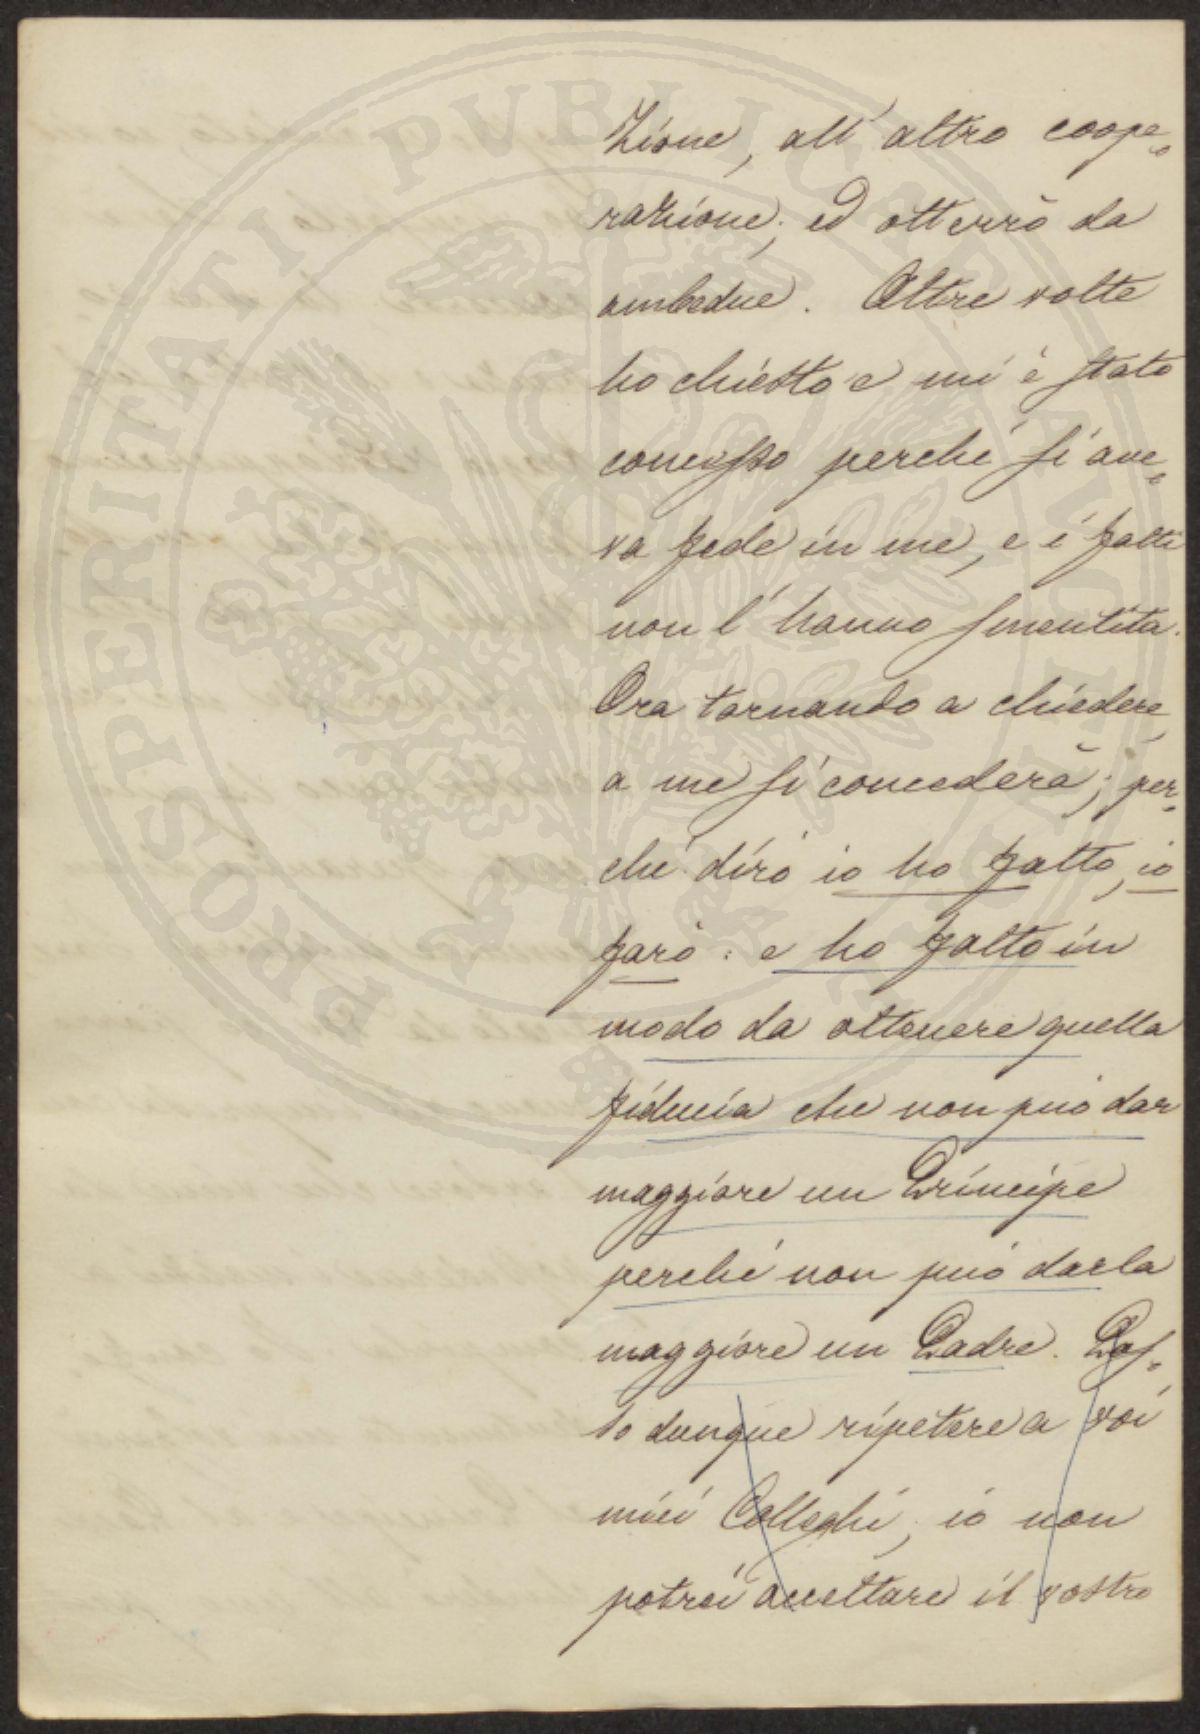 PROSPERITATI PUBLICAE AUGENDAE
zione, all'altro coope-
razione; ed otterrò da
ambedue. Altre volte
ho chiesto e mi è stato
concesso perché si ave-
va fede in me, e i fatti
non l'hanno smentita.
Ora tornando a chiedere,
a me si concederà; per-
ché dirò io ho fatto, io
farò: e ho fatto in
modo da ottenere quella
fiducia che non può dar
maggiore un Principe
perché non può darla
maggiore un Padre. Pos-
so dunque ripetere a voi
miei Colleghi, io non
potrei accettare il vostro